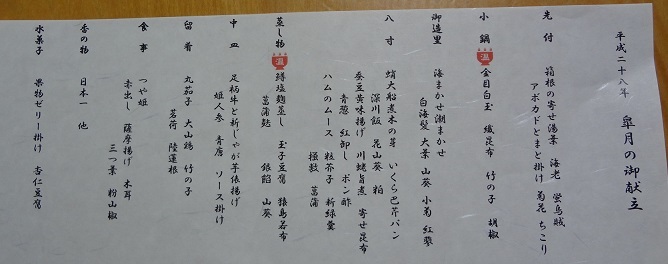 平成二十八年 皐月の御献立
先付 箱根の寄せ湯葉 海老 蛍烏賊
アボカドとまと掛け 菊花 ちこり
小鍋 温 金目白玉 織昆布 竹の子 胡椒
御造里 海まかせ潮まかせ
白海髪 大葉 山葵 小菊 紅蓼
八寸 蛸大船煮木の芽 いくら巴芹パン
深川飯 花山葵 粕
蚕豆黄味揚げ 川鱚旨煮 寄せ昆布
青葱 紅卸し ポン酢
ハムのムース 粒芥子 新緑羹
菖蒲
蒸し物 温 鱒塩麹蒸し 玉子豆腐 猿島若布
菖蒲麩 銀餡 山葵
中皿 足柄牛と新じゃが芋俵揚げ
姫人参 青唐 ソース掛け
留肴 丸茄子 大山鶏 竹の子
茗荷 陸蓮根
食事 つや姫
赤出し 薩摩揚げ 木耳
三つ葉 粉山椒
香の物 日本一 他
水菓子 果物ゼリー掛け 杏仁豆腐